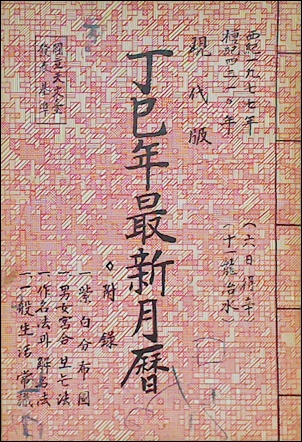 西紀一九七七年
檀紀四三一〇年
(六日得辛)
(十龍治水)
現代版
丁巳年最新月曆
國立天文臺
作成基準
◇附錄
一紫白分布圖
一男女宮合보는法
一作名法과解名法
一一般生活常識